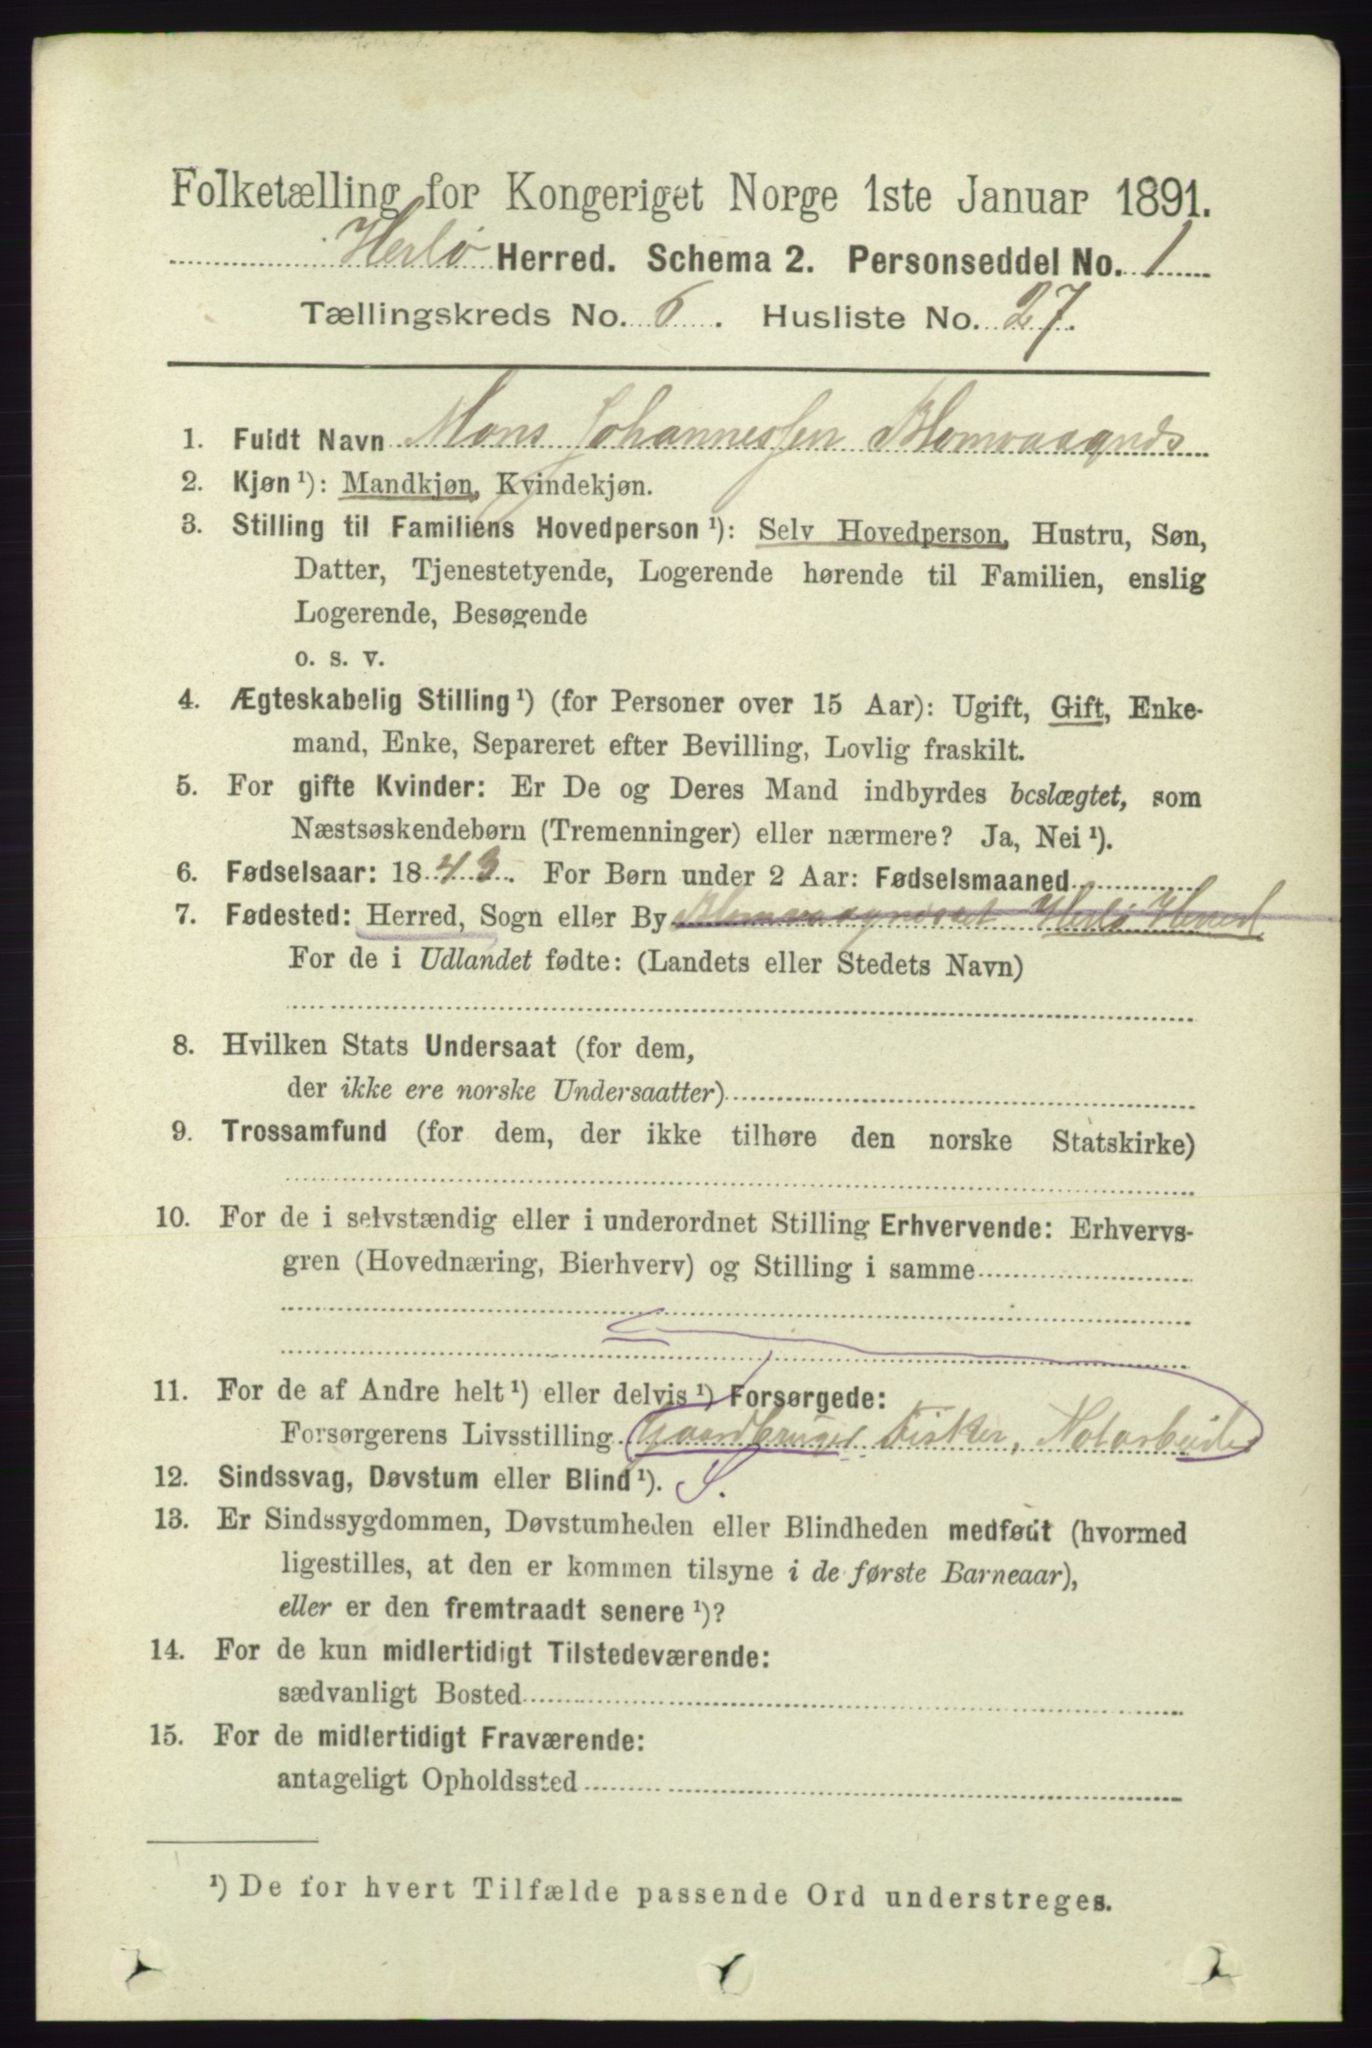 Folketælling for Kongeriget Norge 1ste Januar 1891.
Herlø Herred. Schema 2. Personseddel No. 1
Tællingskreds No. 6. Husliste No. 27.
1. Fuldt Navn Mons Johannessen Blomvaagnæs
2. Kjøn ¹): Mandkjøn, Kvindekjøn.
3. Stilling til Familiens Hovedperson ¹): Selv Hovedperson, Hustru, Søn,
Datter, Tjenestetyende, Logerende hørende til Familien, enslig
Logerende, Besøgende
o. s. v.
4. Ægteskabelig Stilling ¹) (for Personer over 15 Aar): Ugift, Gift, Enke-
mand, Enke, Separeret efter Bevilling, Lovlig fraskilt.
5. For gifte Kvinder: Er De og Deres Mand indbyrdes beslægtet, som
Næstsøskendebørn (Tremenninger) eller nærmere? Ja, Nei ¹).
6. Fødselsaar: 1843. For Børn under 2 Aar: Fødselsmaaned
7. Fødested: Herred, Sogn eller By Herlø Herred
For de i Udlandet fødte: (Landets eller Stedets Navn)
8. Hvilken Stats Undersaat (for dem,
der ikke ere norske Undersaatter)
9. Trossamfund (for dem, der ikke tilhøre den norske Statskirke)
10. For de i selvstændig eller i underordnet Stilling Erhvervende: Erhvervs-
gren (Hovednæring, Bierhverv) og Stilling i samme
11. For de af Andre helt ¹) eller delvis ¹) Forsørgede:
Forsørgerens Livsstilling Gaardbruger Fisker, Notarbeider
12. Sindssvag, Døvstum eller Blind ¹). S.
13. Er Sindssygdommen, Døvstumheden eller Blindheden medfødt (hvormed
ligestilles, at den er kommen tilsyne i de første Barneaar),
eller er den fremtraadt senere ¹)?
14. For de kun midlertidigt Tilstedeværende:
sædvanligt Bosted
15. For de midlertidigt Fraværende:
antageligt Opholdssted
¹) De for hvert Tilfælde passende Ord understreges.